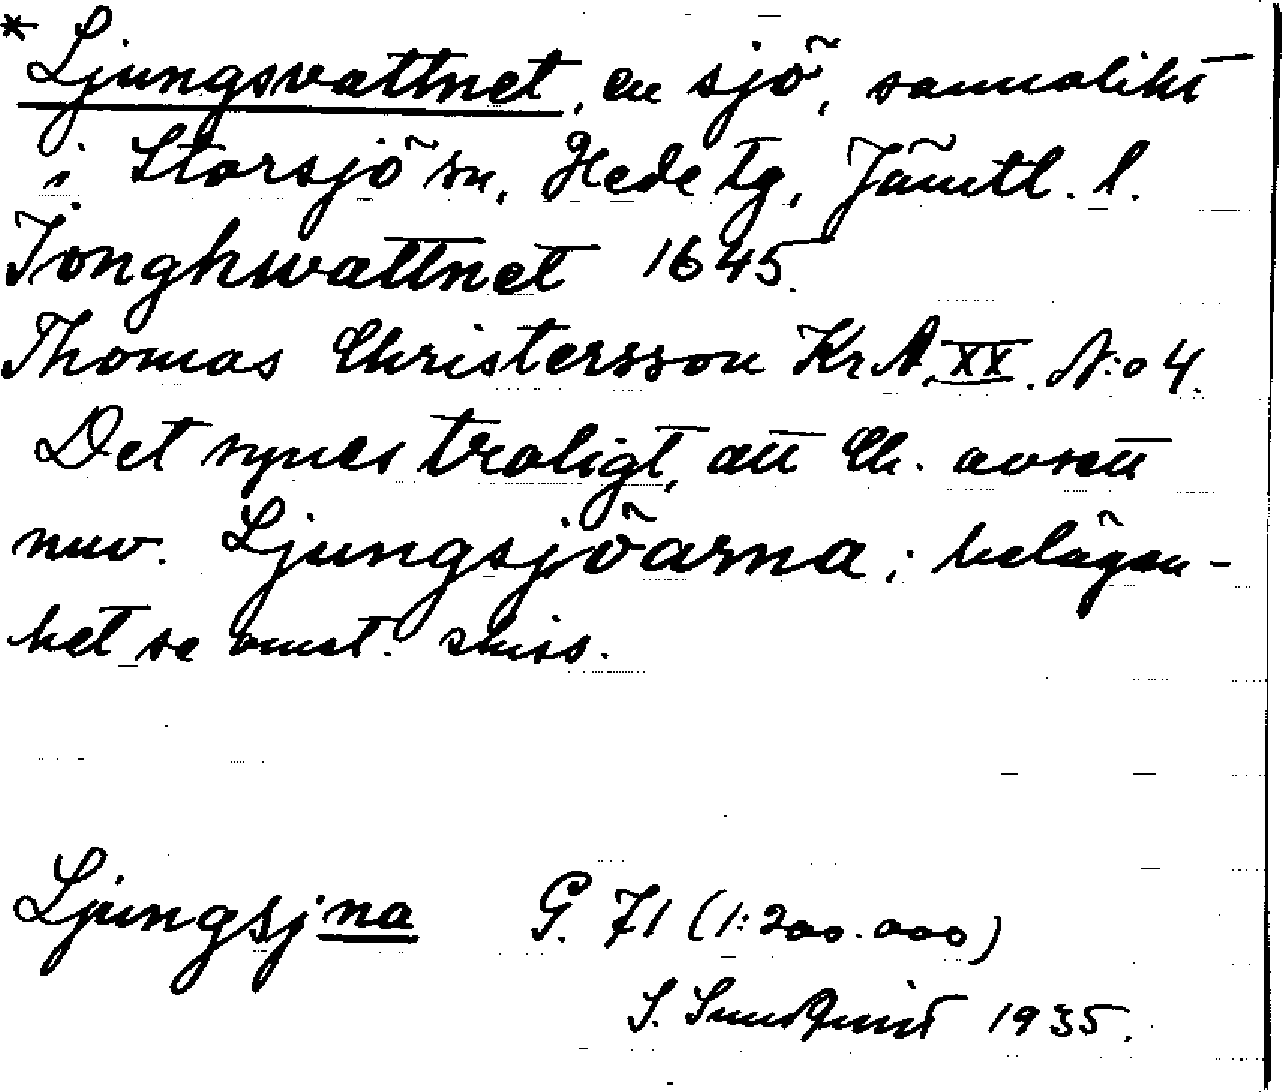 * Ljungsvattnet, en sjö, sannolikt
i Storsjö sn, Hede tg, Jämtl. l.
Jonghwattnet 1645.
Thomas Christersson KrA, XX. N:o 4.
Det synes troligt, att Ch. avsett
nuv. Ljungsjöarna; belägen-
het se omst. skiss.
Ljungsjna G. 71 (1:200.000)
S. Sundquist 1935.